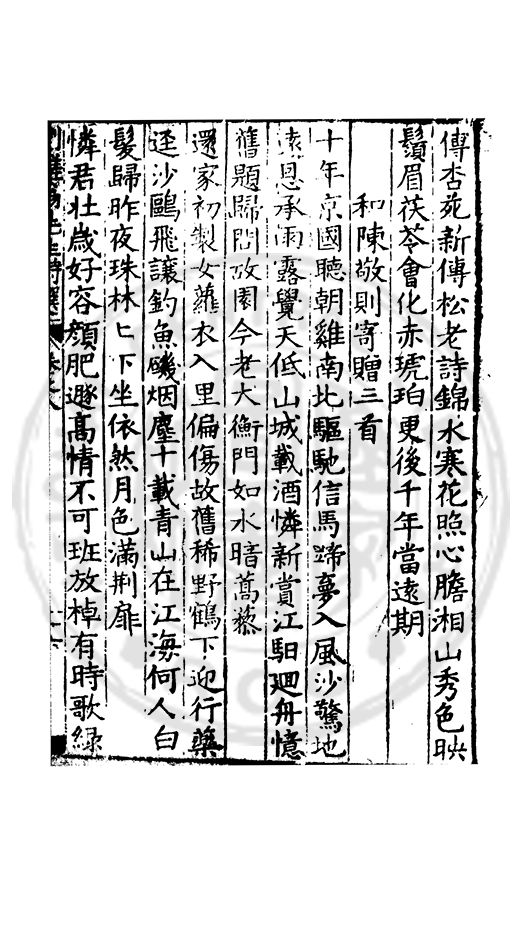 傳杏苑新傳松老詩錦水寒花照心膽湘山秀色映
鬚眉茯苓會化赤琥珀更後千年當遠期
和陳敬則寄贈三首
十年京國聽朝雞南北驅馳信馬蹄夢入風沙驚地
遠恩承雨露覺天低山城載酒憐新賞江馹廻舟憶
舊題歸問故園今老大衡門如水暗蒿藜
還家初製女蘿衣入里偏傷故舊稀野鶴下迎行藥
逕沙鷗飛讓釣魚磯烟塵十載青山在江海何人白
髮歸昨夜珠林匕下坐依然月色滿荆扉
憐君壯歲好容顏肥遯高情不可班放棹有時歌綠